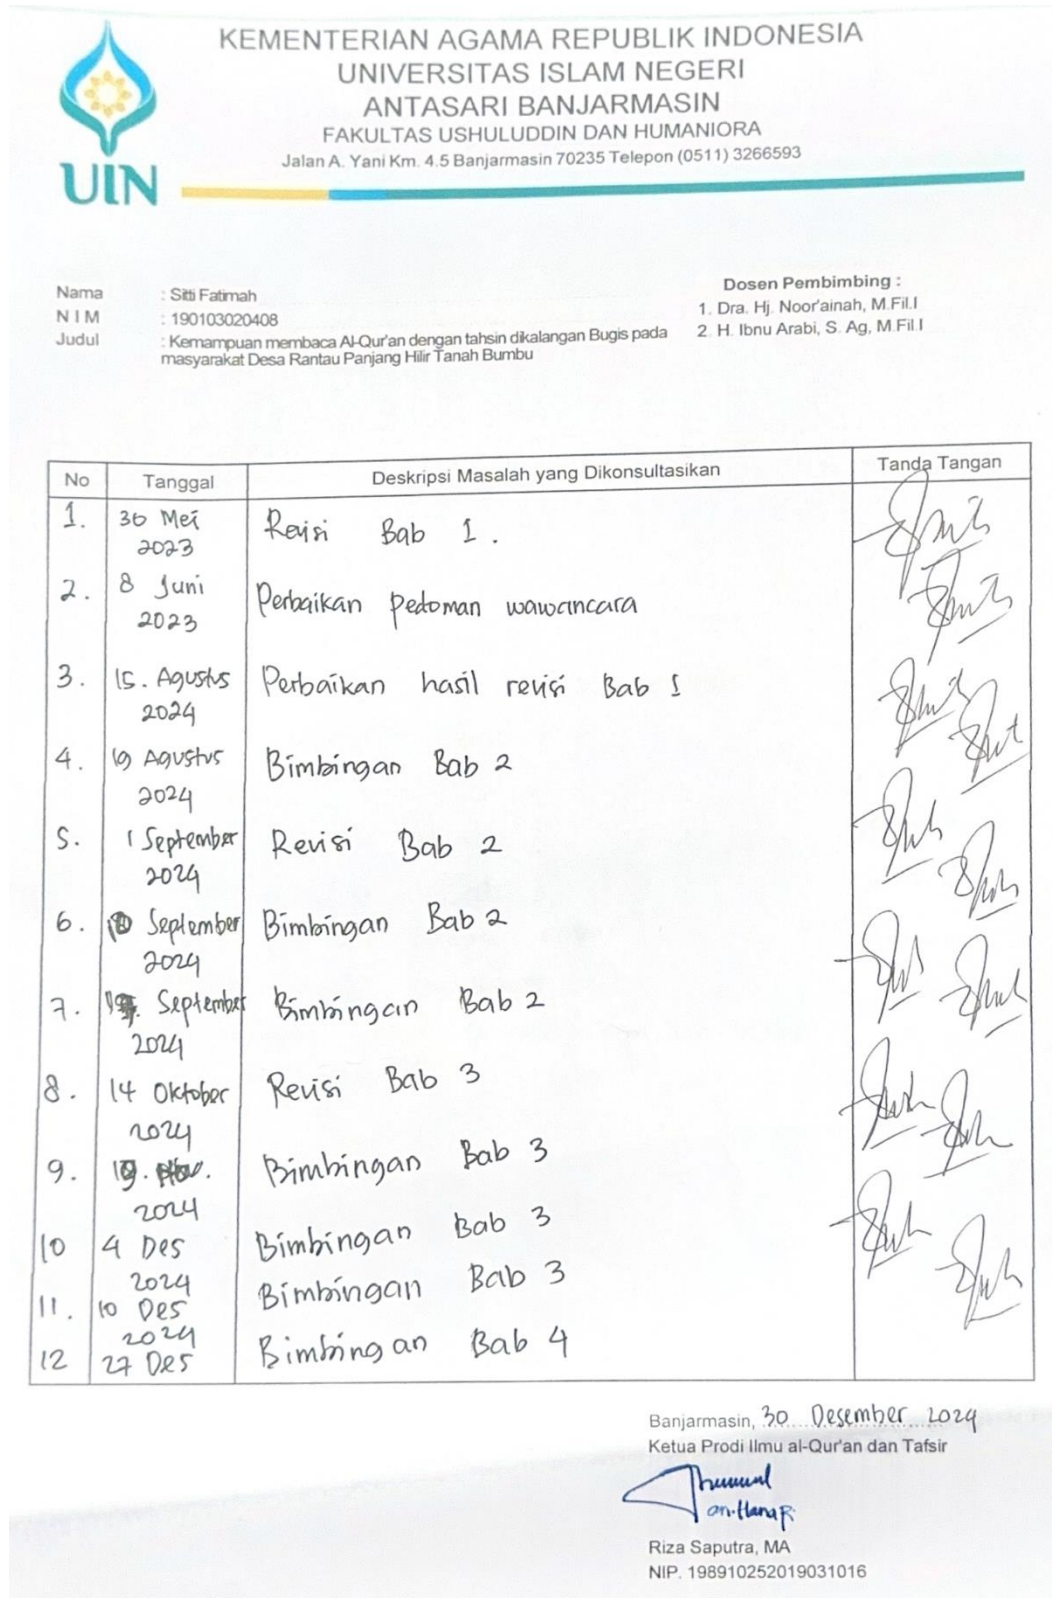 KEMENTERIAN AGAMA REPUBLIK INDONESIA
UNIVERSITAS ISLAM NEGERI
ANTASARI BANJARMASIN
FAKULTAS USHULUDDIN DAN HUMANIORA
Jalan A. Yani Km. 4.5 Banjarmasin 70235 Telepon (0511) 3266593
UIN
Nama : Sitti Fatimah
NIM : 190103020408
Judul : Kemampuan membaca Al-Qur'an dengan tahsin dikalangan Bugis pada
masyarakat Desa Rantau Panjang Hilir Tanah Bumbu
Dosen Pembimbing :
1. Dra. Hj. Noor'ainah, M.Fil.I
2. H. Ibnu Arabi, S. Ag, M.Fil.I
No Tanggal Deskripsi Masalah yang Dikonsultasikan Tanda Tangan
1. 30 Mei Revisi Bab 1.
2023
2. 8 Juni Perbaikan pedoman wawancara
2023
3. 15. Agustus Perbaikan hasil revisi Bab 1
2024
4. 19 Agustus Bimbingan Bab 2
2024
5. 1 September Revisi Bab 2
2024
6. September Bimbingan Bab 2
2024
7. September Bimbingan Bab 2
2024
8. 14 Oktober Revisi Bab 3
2024
9. Bimbingan Bab 3
2024
10 4 Des Bimbingan Bab 3
2024
11. 10 Des Bimbingan Bab 3
2024
12 27 Des Bimbingan Bab 4
Banjarmasin, 30 Desember 2024
Ketua Prodi Ilmu al-Qur'an dan Tafsir
Riza Saputra, MA
NIP. 198910252019031016